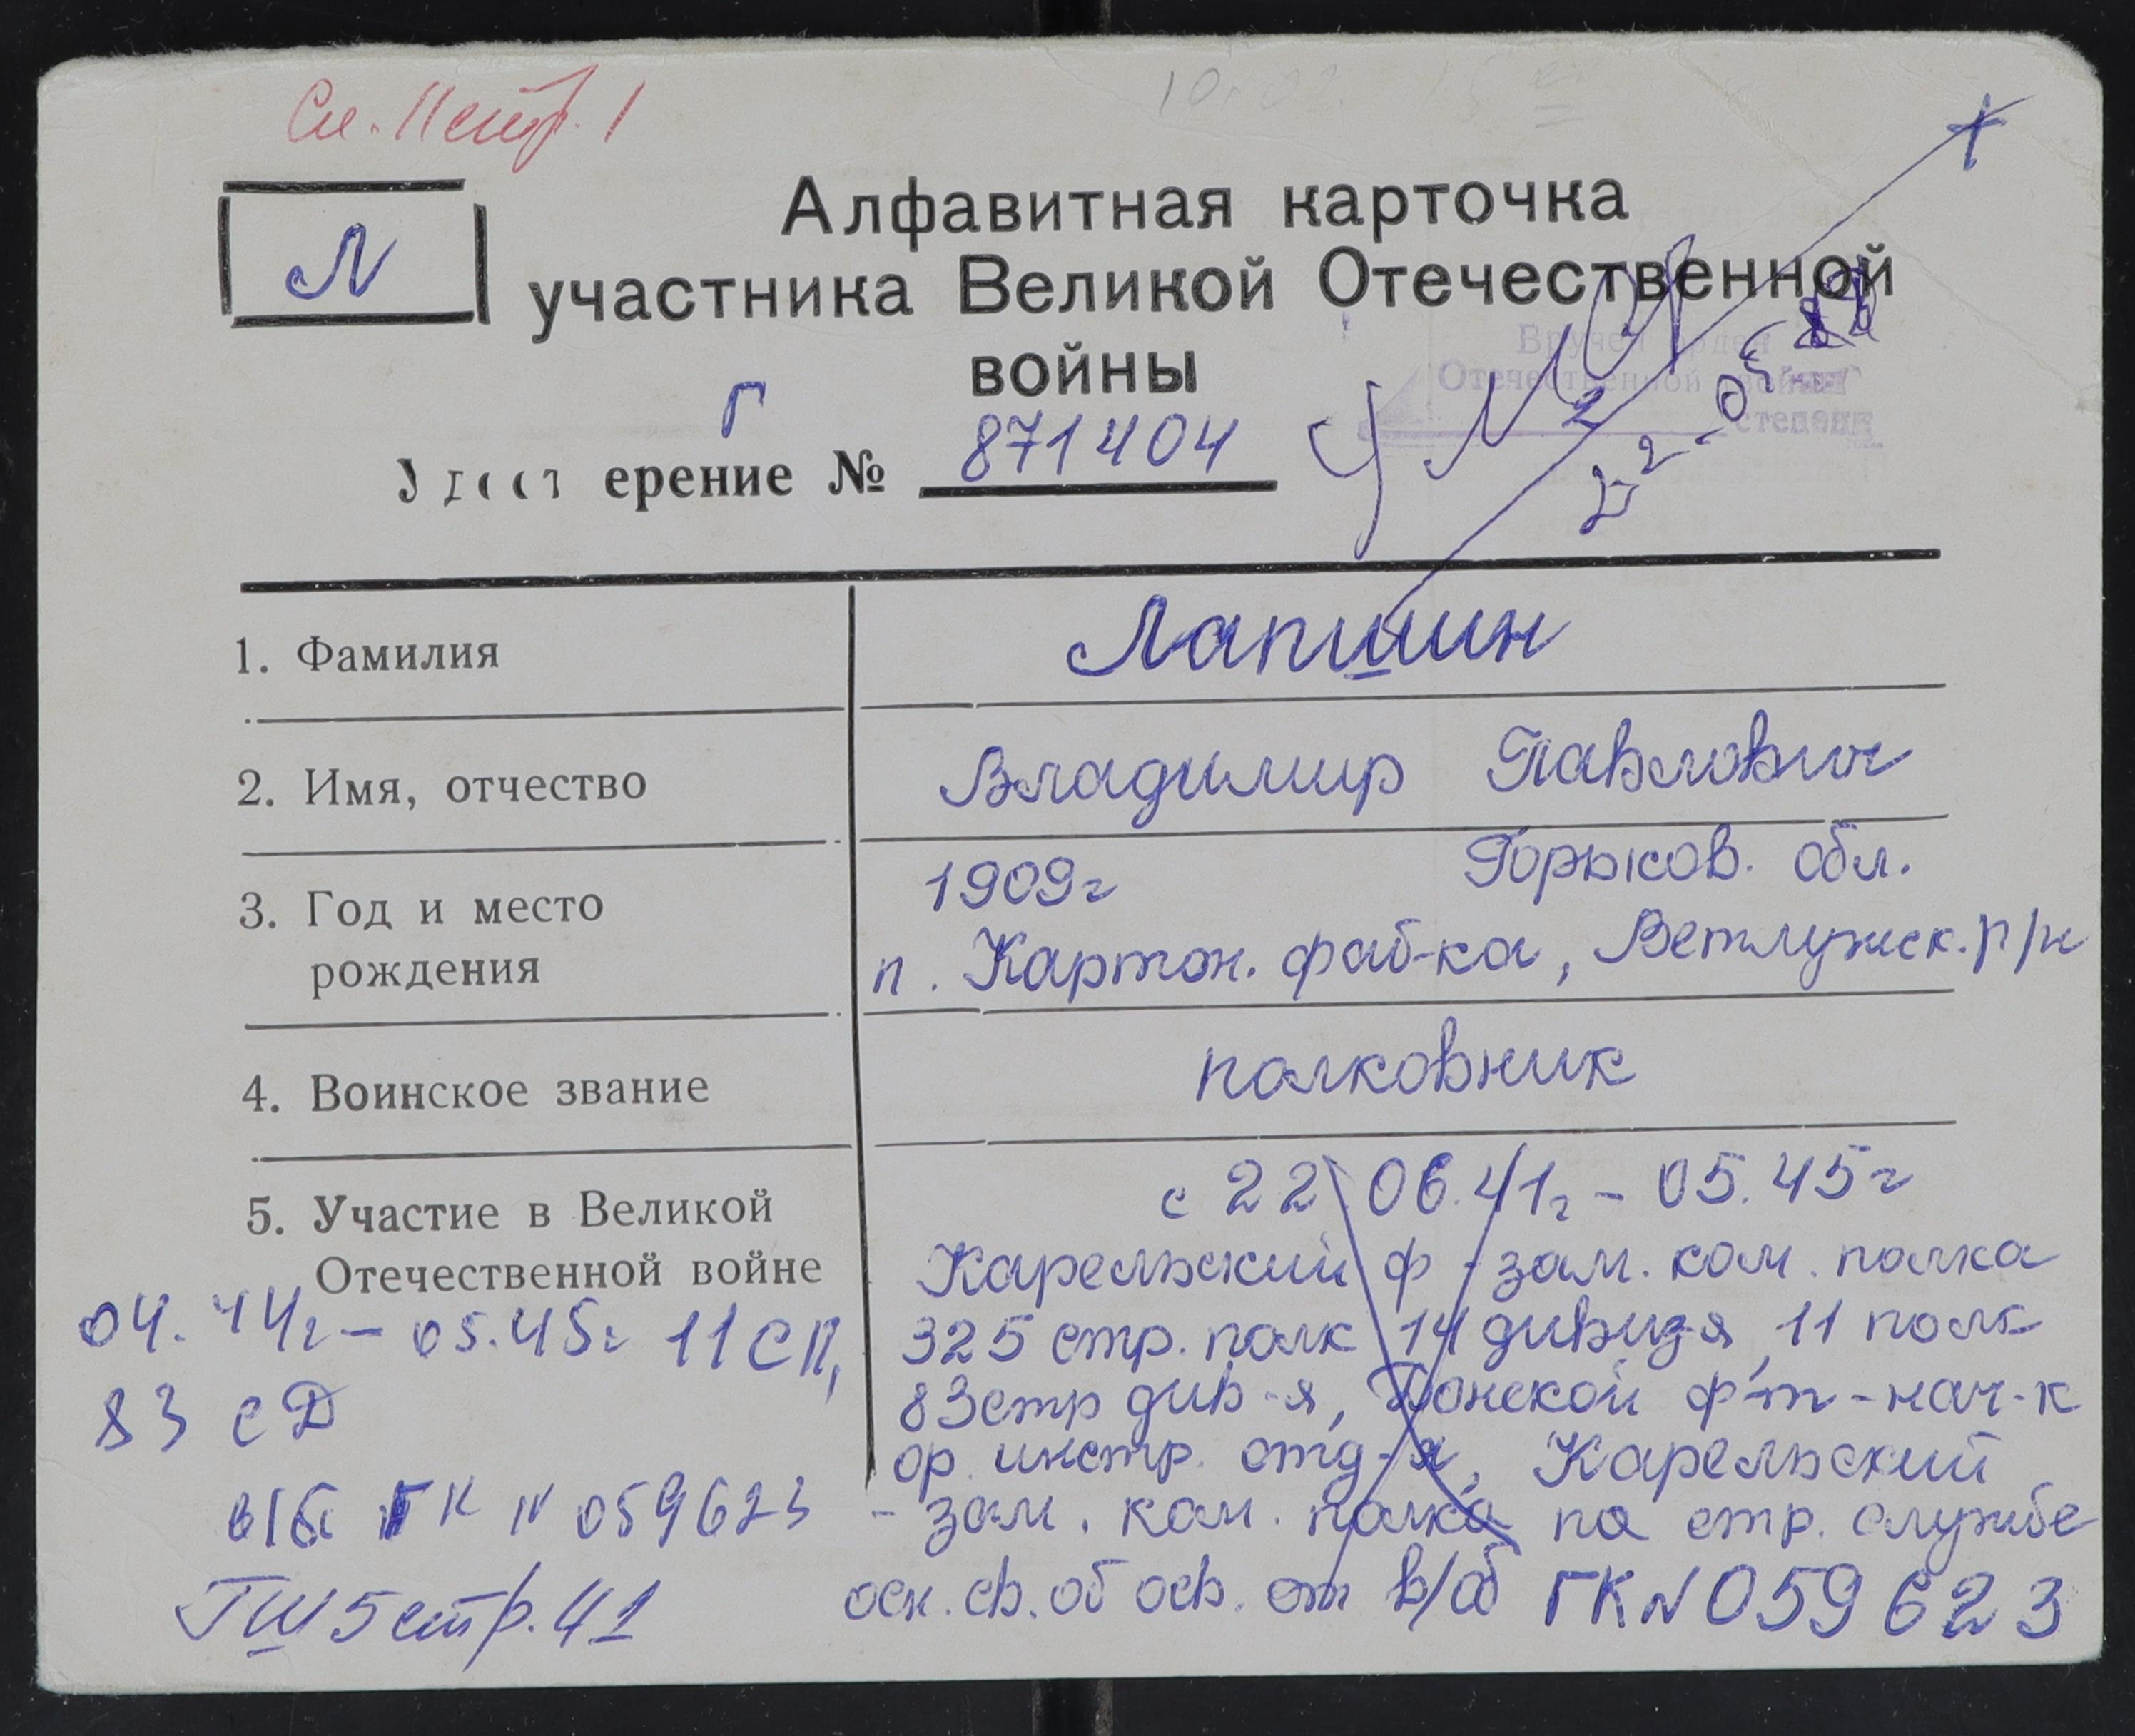 См. 11 стр. 1
10.02.
Л
Алфавитная карточка
участника Великой Отечественной
войны
Вручен орден
Отечественной войны
степени
22-05-
Г
ерение № 871404
1. Фамилия Лапшин
2. Имя, отчество Владимир Павлович
3. Год и место рождения 1909г Горьков. обл.
п. Картон. фаб-ка, Ветлужск. р/н
4. Воинское звание полковник
5. Участие в Великой Отечественной войне
с 22.06.41г - 05.45г
Карельский ф - зам. ком. полка
325 стр. полк 14 дивиз-я, 11 полк
83 стр див-я, Донской ф-т - нач-к
ор. инстр. отд-я, Карельский
- зам. ком. полка по стр. службе
осн. св. об осв. от в/об ГК N 059623
04.44г - 05.45г 11 СП,
83 СД
в/б ГК N 059623
ТШ 5 стр. 41